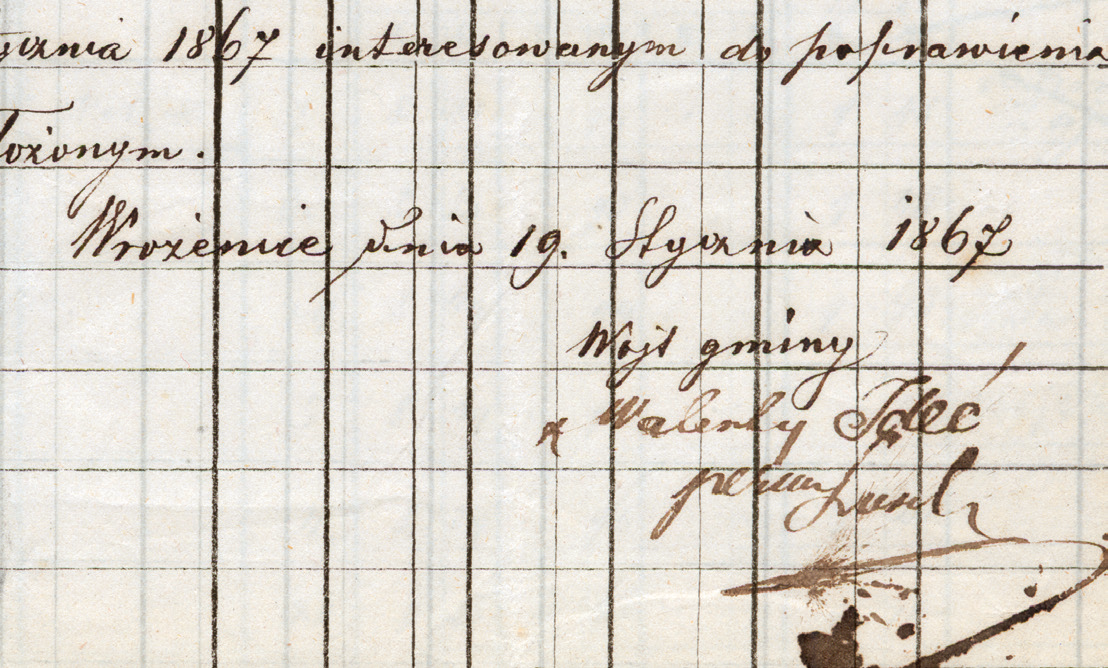 ycznia 1867 interesowanym do poprawienia
łożonym.
Wrożenice dnia 19. Stycznia 1867
Wojt gminy
x Walenty